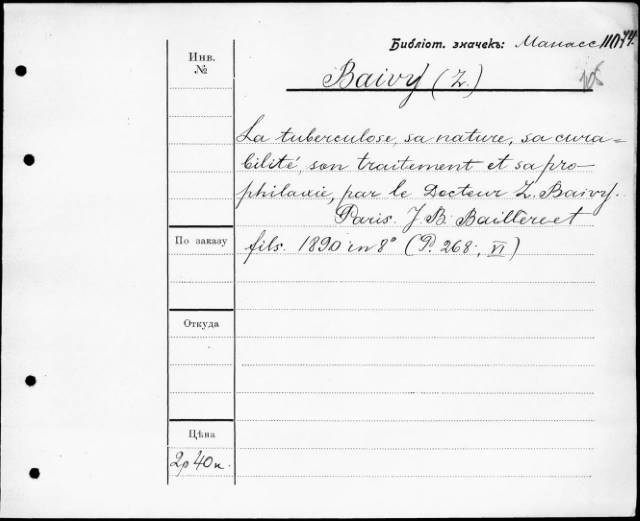 Библіот. значекъ: Манасс
Инв.
№
Baivy (Z.)
La tuberculose, sa nature, sa cura=
bilité, son traitement et sa pro-
philaxie, par le Docteur Z. Baivy.
Paris. J. B. Baillere et
По заказу
fils. 1890 in 8° (P. 268, VI)
Откуда
Цѣна
2р 40к.